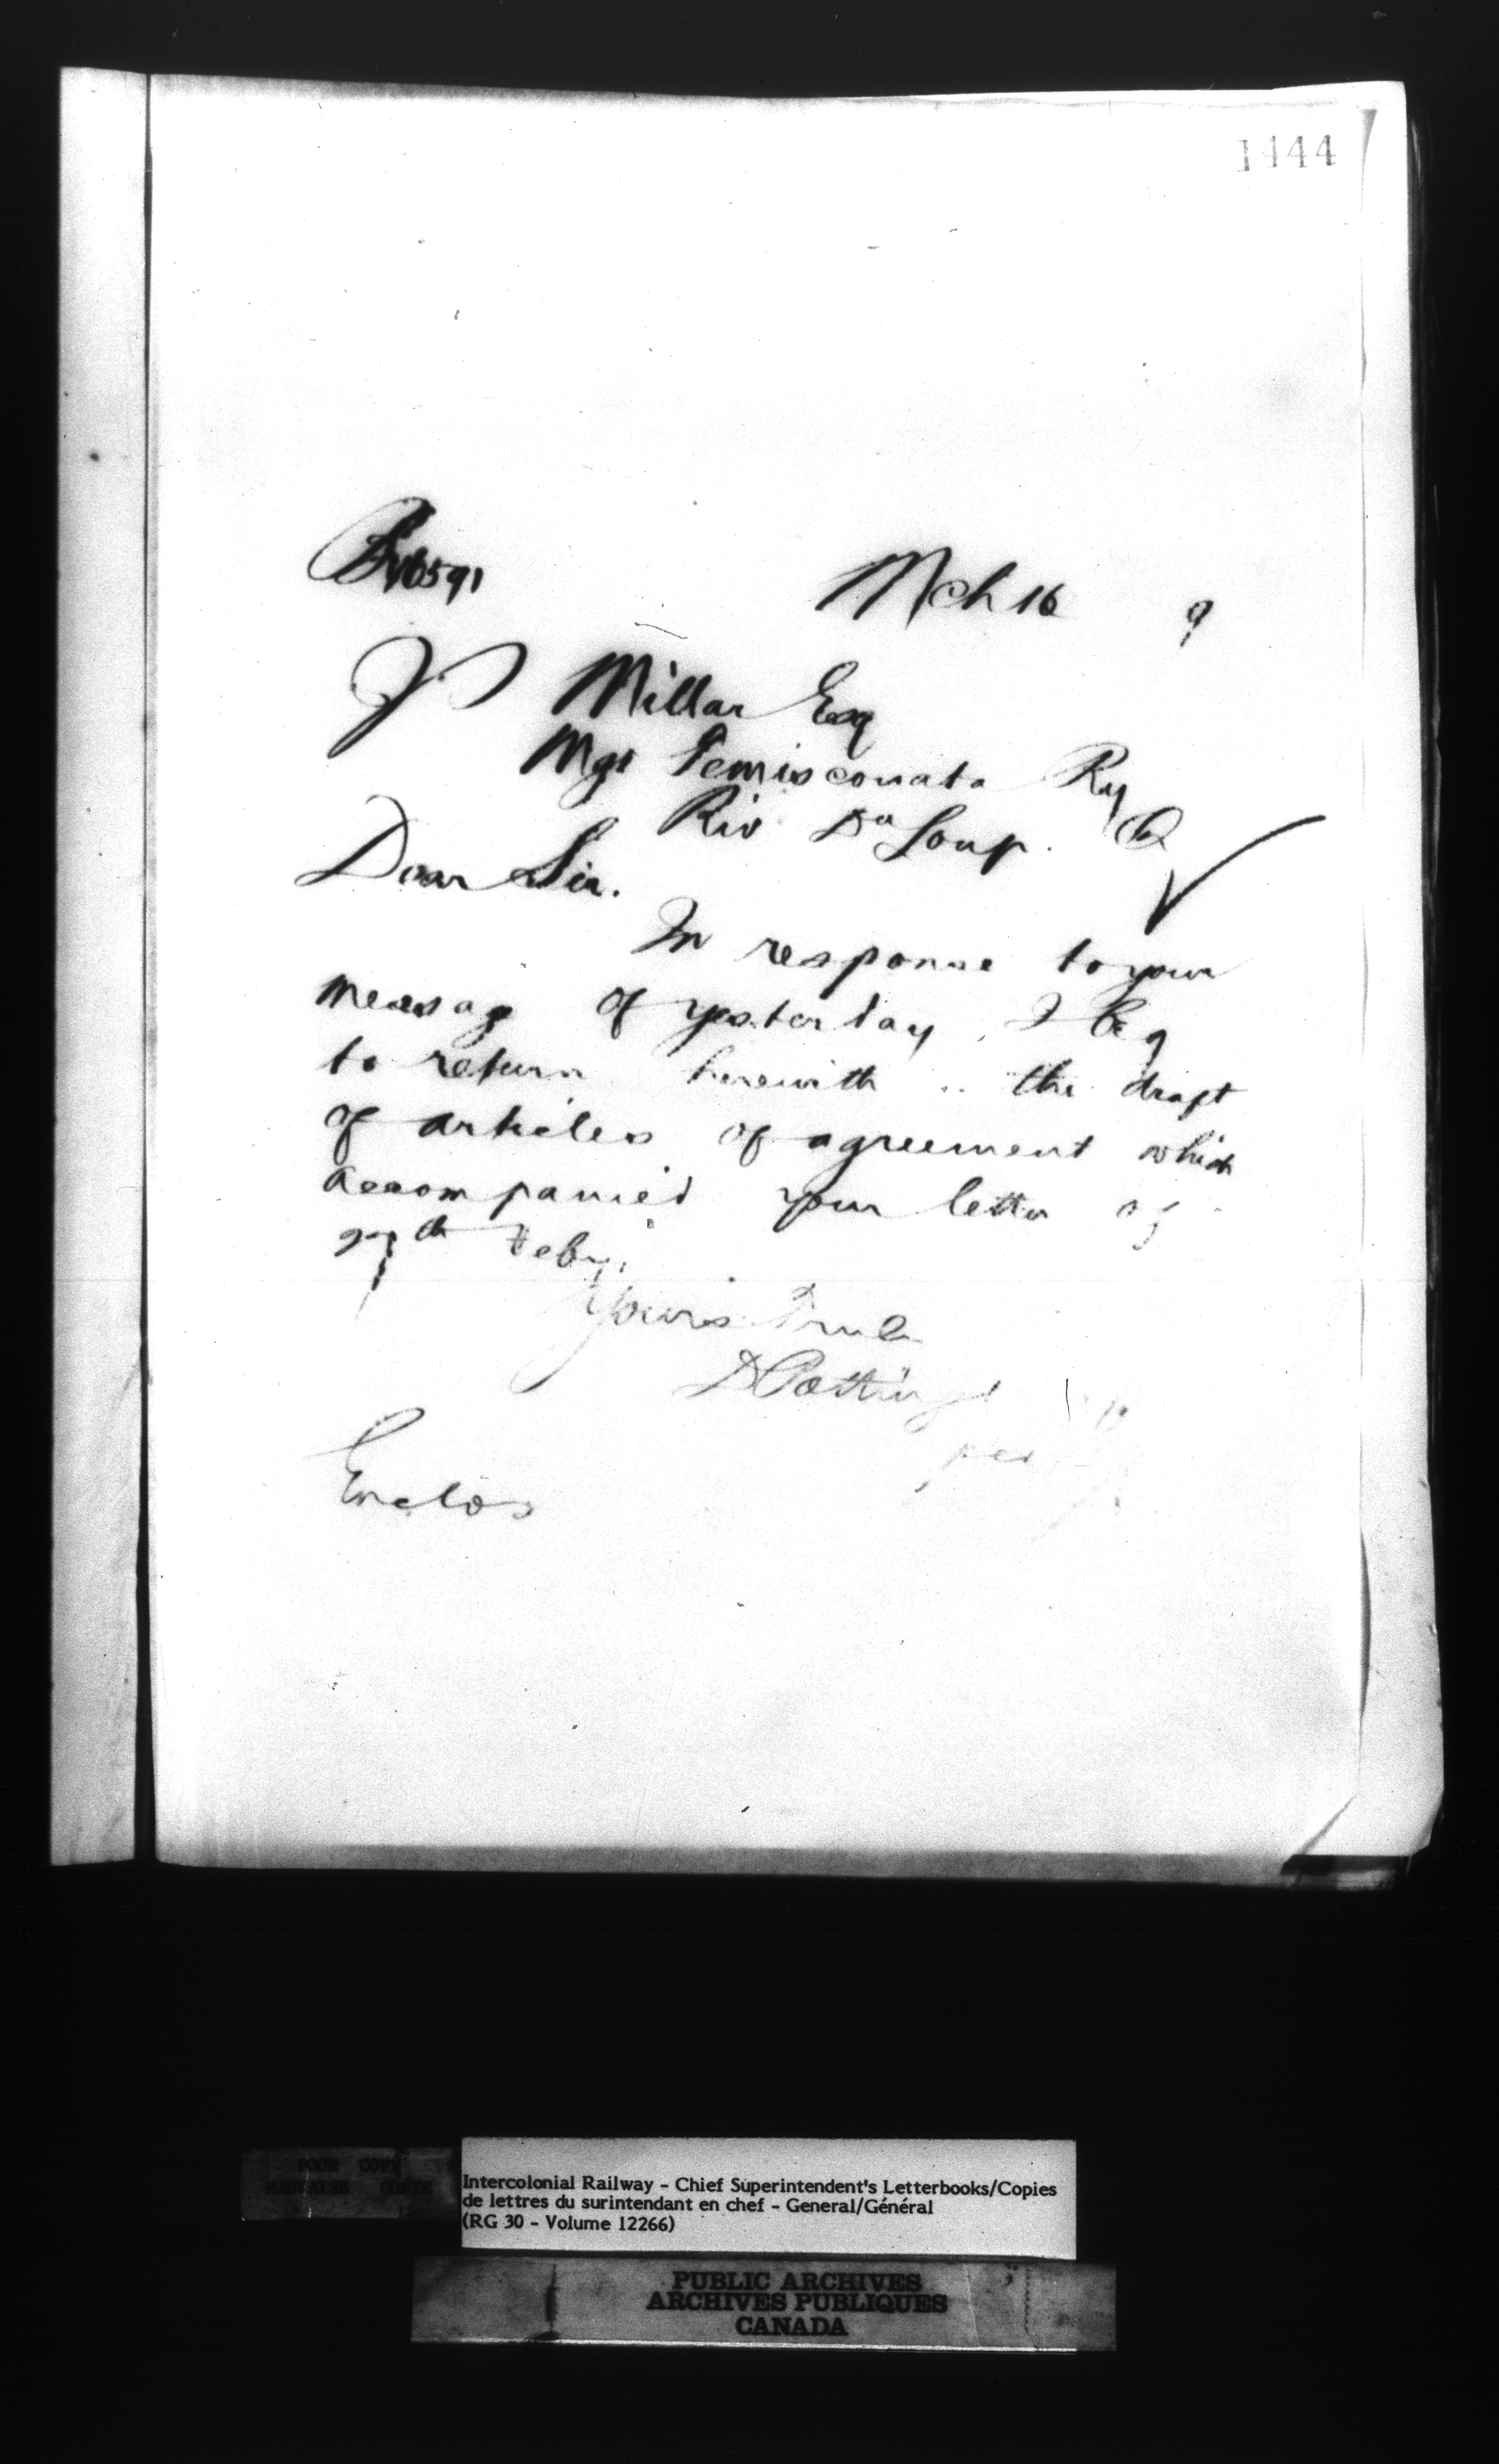 1444
Mch 16 9
Millar Esq
Mgr Temisconata Ry
Riv Du Loup. Q
Dear Sir.
In response to your
message of yesterday, I beg
to return herewith .. the draft
of articles of agreement which
accompanied your letter of
27th Feby.
Yours Truly
D Pottinger
per
Enclos
POOR COPY
MAUVAISE COPIE
Intercolonial Railway - Chief Superintendent's Letterbooks/Copies
de lettres du surintendant en chef - General/Général
(RG 30 - Volume 12266)
PUBLIC ARCHIVES
ARCHIVES PUBLIQUES
CANADA